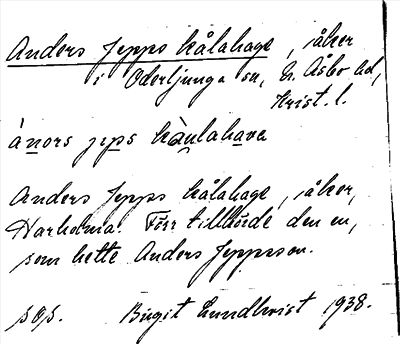 Anders Jepps kålahage, åker
i Oderljunga sn, N. Åsbo hd,
Krist. l.
ànors jeps kàulahava
Anders Jepps kålahage, åker,
Harholma. Förr tillhörde den en,
som hette Anders Jeppsson.
sos. Birgit Lundkvist 1938.